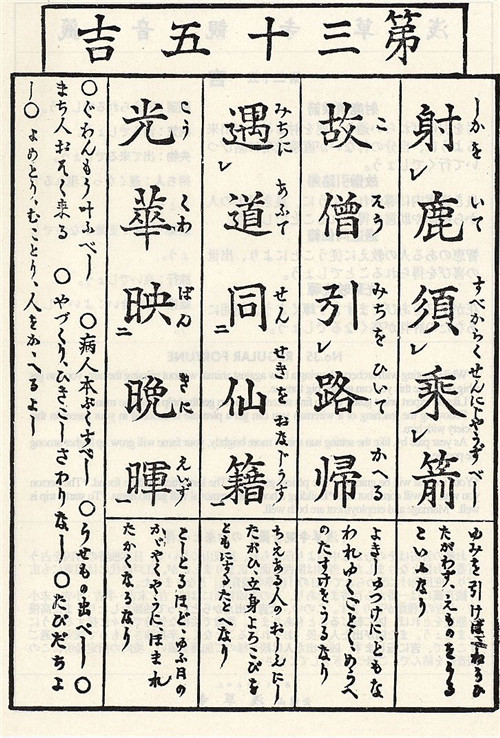 第三十五吉
しかをいて すべからくせんにじやうずべし
射レ鹿須レ乗レ箭
ゆみを引けばねらひ
たがわず、えものをうる
ことふなり
こそう みちをひいて かへる
故僧引レ路帰
われゆくごとく、めうへ
のたすけをうるなり
みちに あふて せんせきを おなじうす
遇レ道同二仙籍一
ちえある人の
たがひ、立身よろこびを
ともにするたとへなり
光華映二晩暉一
としとるほど、ゆふ日の
かゞやくやうに、ほまれ
たかくなるなり
○ぐわんもう叶ふべし ○病人本ぷくすべし ○うせもの出べし ○
まち人おそく来る ○やづくり、ひきこしさわりなし ○たびだちよ
し ○よめとり、むことり、人をかゝるよし